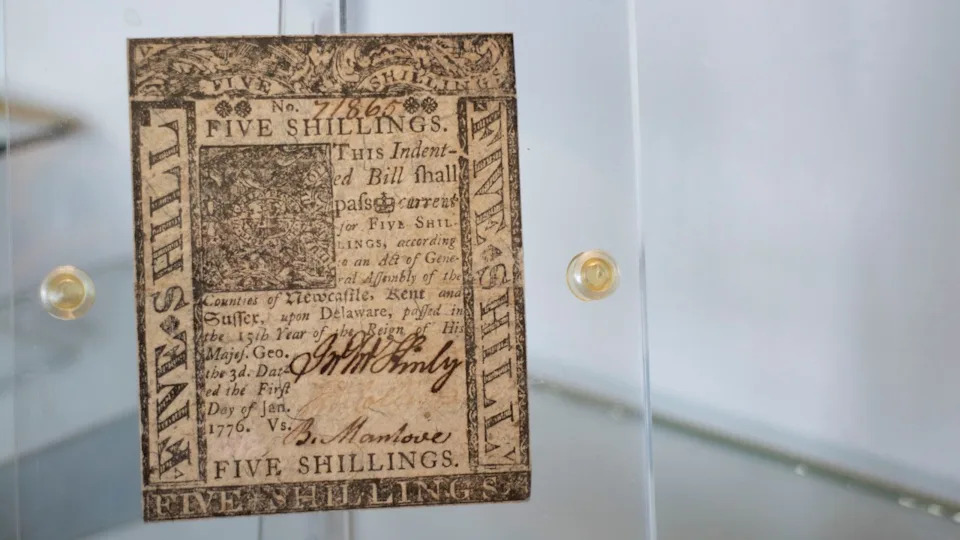 FIVE SHILLINGS
No. 71865
FIVE SHILLINGS.
THIS Indent-
ed Bill ſhall
paſs current
for FIVE SHIL-
LINGS, according
to an Act of Gene-
ral Aſſembly of the
Counties of Newcaſtle, Kent and
Suſſex, upon Delaware, paſſed in
the 15th Year of the Reign of His
Majeſ. Geo.
the 3d. Dat-
ed the Firſt
Day of Jan.
1776. Vs.
B. Manlove
FIVE SHILLINGS.
FIVE SHILLINGS.
FIVE SHILL
FIVE SHILLI